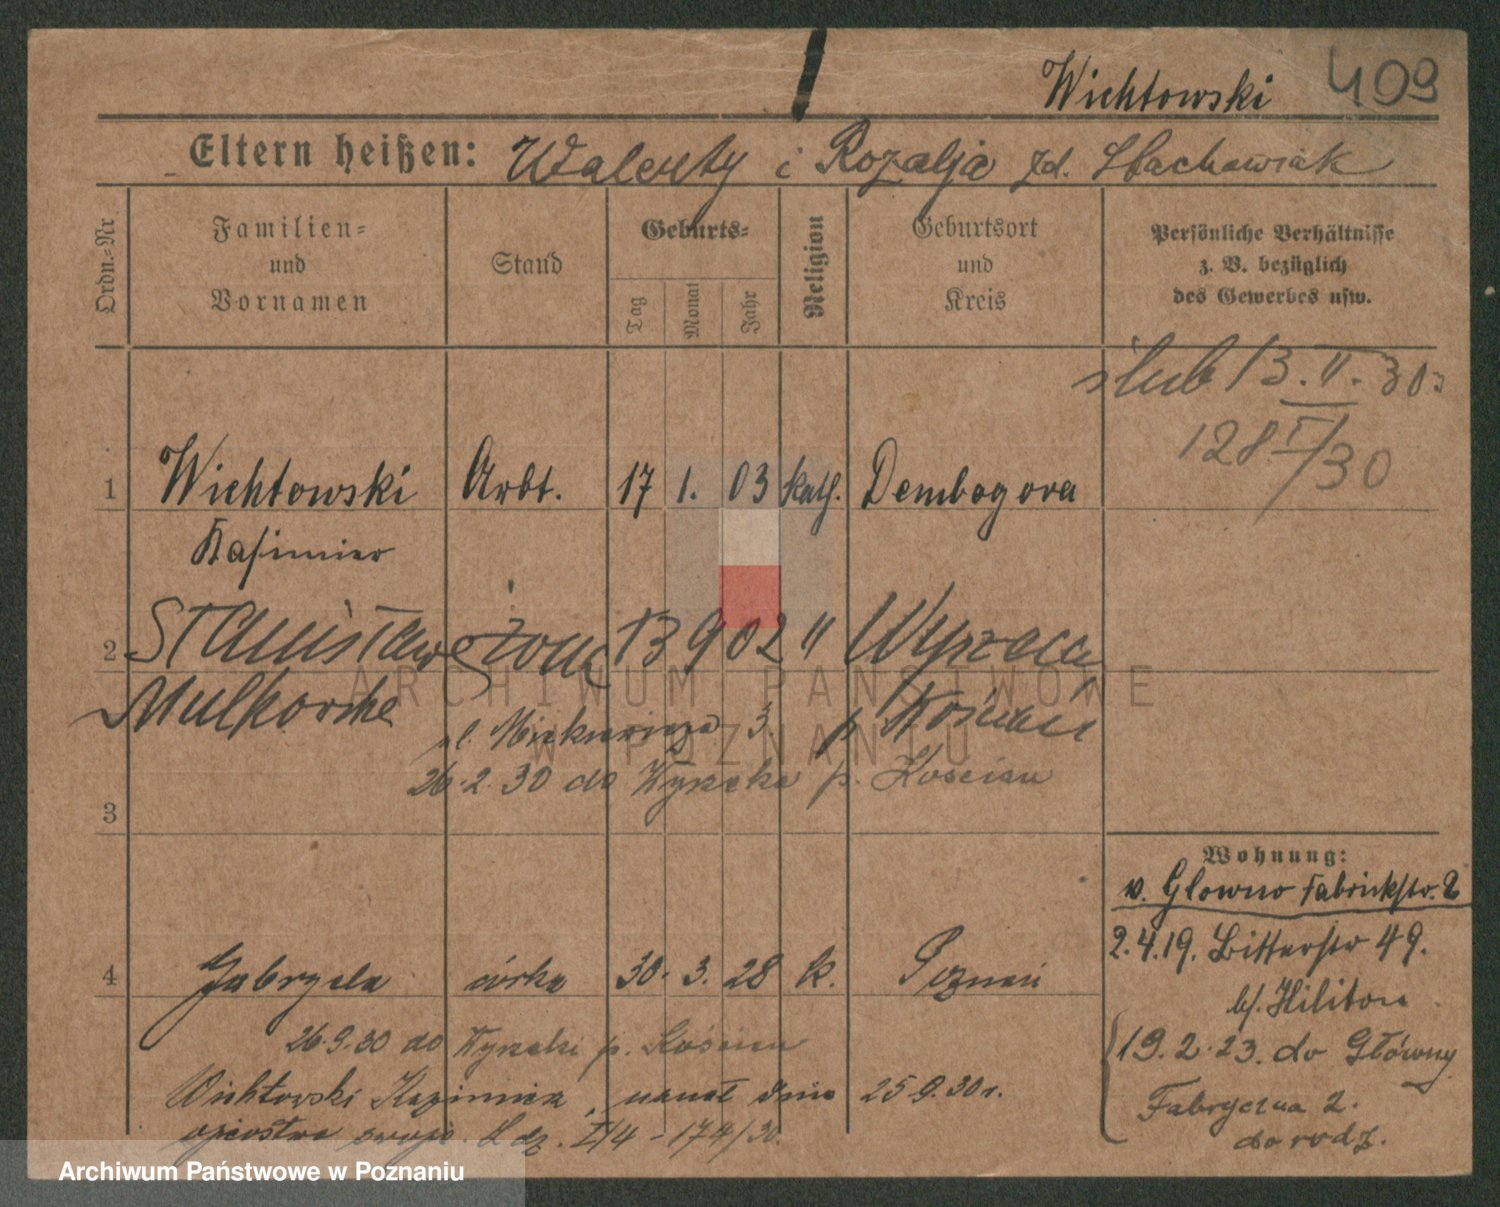 Wichtowski 409
Eltern heißen: Walenty i Rozalja zd. Stachowiak
Ordn.-Nr
Familien-
und
Vornamen
Stand
Geburts-
Tag
Monat
Jahr
Religion
Geburtsort
und
Kreis
Persönliche Verhältnisse
z. B. bezüglich
des Gewerbes usw.
ślub 13.II.30
128 I/30
1 Wichtowski Arbt. 17 1. 03 kath. Dembogora
Kasimier
2 Stanisława żona 13 9 02 "
ARCHIWUM PAŃSTWOWE
W POZNANIU
ul. 3 p. Kościan
26.2.30 do p. Kościan
3
Wohnung:
v. Glowno Fabrickstr. 2
2.4.19. Bitterstr 49.
b/.
19.2.23. do Główny
Fabryczna 2.
do rodz.
4 Gabryela córka 30. 3. 28 k. Poznań
26.9.30 do p. Kościan
Wichtowski Kazimierz uznał dnia 25 9.30 r.
ojcostwo L dz. I/4-174/30.
Archiwum Państwowe w Poznaniu